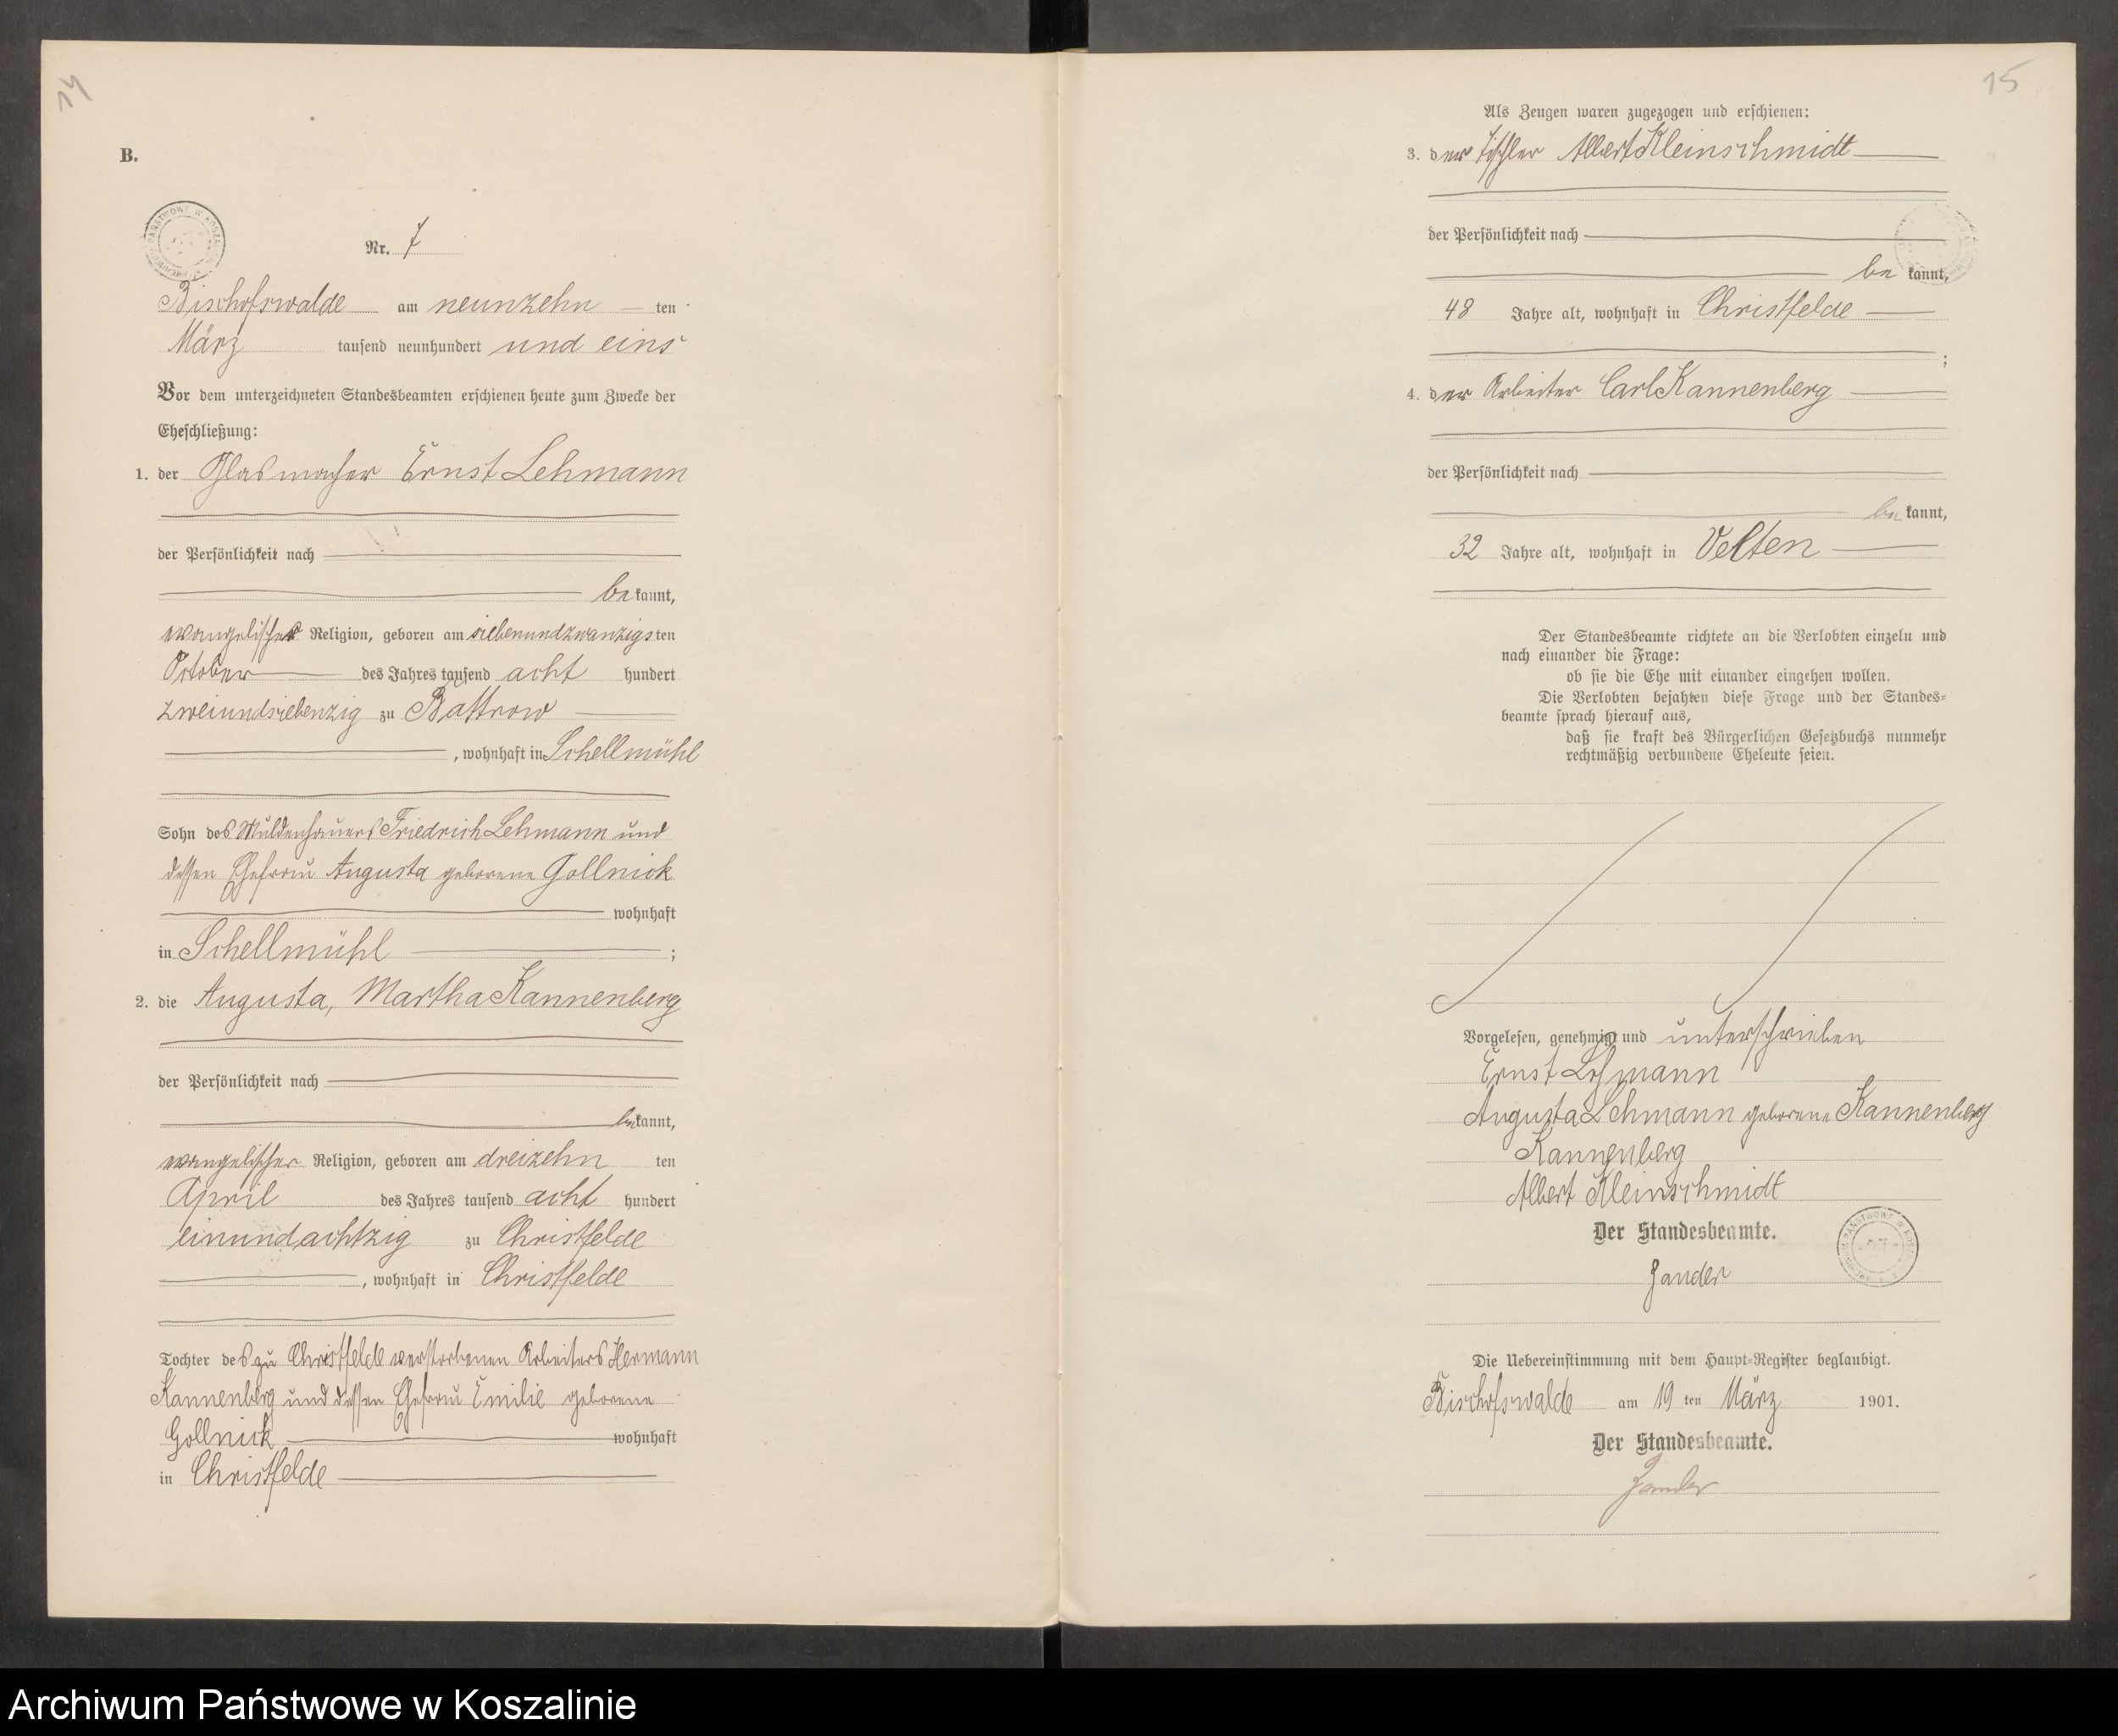 14
B.
Nr. 7
Bischofswalde am neunzehn ten
März tausend neunhundert und eins
Vor dem unterzeichneten Standesbeamten erschienen heute zum Zwecke der
Eheschließung:
1. der Glasmacher Ernst Lehmann
der Persönlichkeit nach
be kannt,
evangelischer Religion, geboren am siebenundzwanzigs ten
October des Jahres tausend acht hundert
zweiundsiebenzig zu Battrow
, wohnhaft in Schellmühl
Sohn des Muldenhauers Friedrich Lehmann und
dessen Ehefrau Augusta geborene Gollnick
wohnhaft
in Schellmühl ;
2. die Augusta, Martha Kannenberg
der Persönlichkeit nach
be kannt,
evangelischer Religion, geboren am dreizehn ten
April des Jahres tausend acht hundert
einundachtzig zu Christfelde
, wohnhaft in Christfelde
Tochter des zu Christfelde verstorbenen Arbeiters Hermann
Kannenberg und dessen Ehefrau Emilie geborene
Gollnick wohnhaft
in Christfelde
15
Als Zeugen waren zugezogen und erschienen:
3. der Tischler Albert Kleinschmidt
der Persönlichkeit nach
be kannt,
48 Jahre alt, wohnhaft in Christfelde
;
4. der Arbeiter Carl Kannenberg
der Persönlichkeit nach
be kannt,
32 Jahre alt, wohnhaft in Velten
Der Standesbeamte richtete an die Verlobten einzeln und
nach einander die Frage:
ob sie die Ehe mit einander eingehen wollen.
Die Verlobten bejahten diese Frage und der Standes-
beamte sprach hierauf aus,
daß sie kraft des Bürgerlichen Gesetzbuchs nunmehr
rechtmäßig verbundene Eheleute seien.
Vorgelesen, genehmigt und unterschrieben
Ernst Lehmann
Augusta Lehmann geborene Kannenberg
Kannenberg
Albert Kleinschmidt
Der Standesbeamte.
Zander
Die Uebereinstimmung mit dem Haupt-Register beglaubigt.
Bischofswalde am 19 ten März 1901.
Der Standesbeamte.
Zander
Archiwum Państwowe w Koszalinie